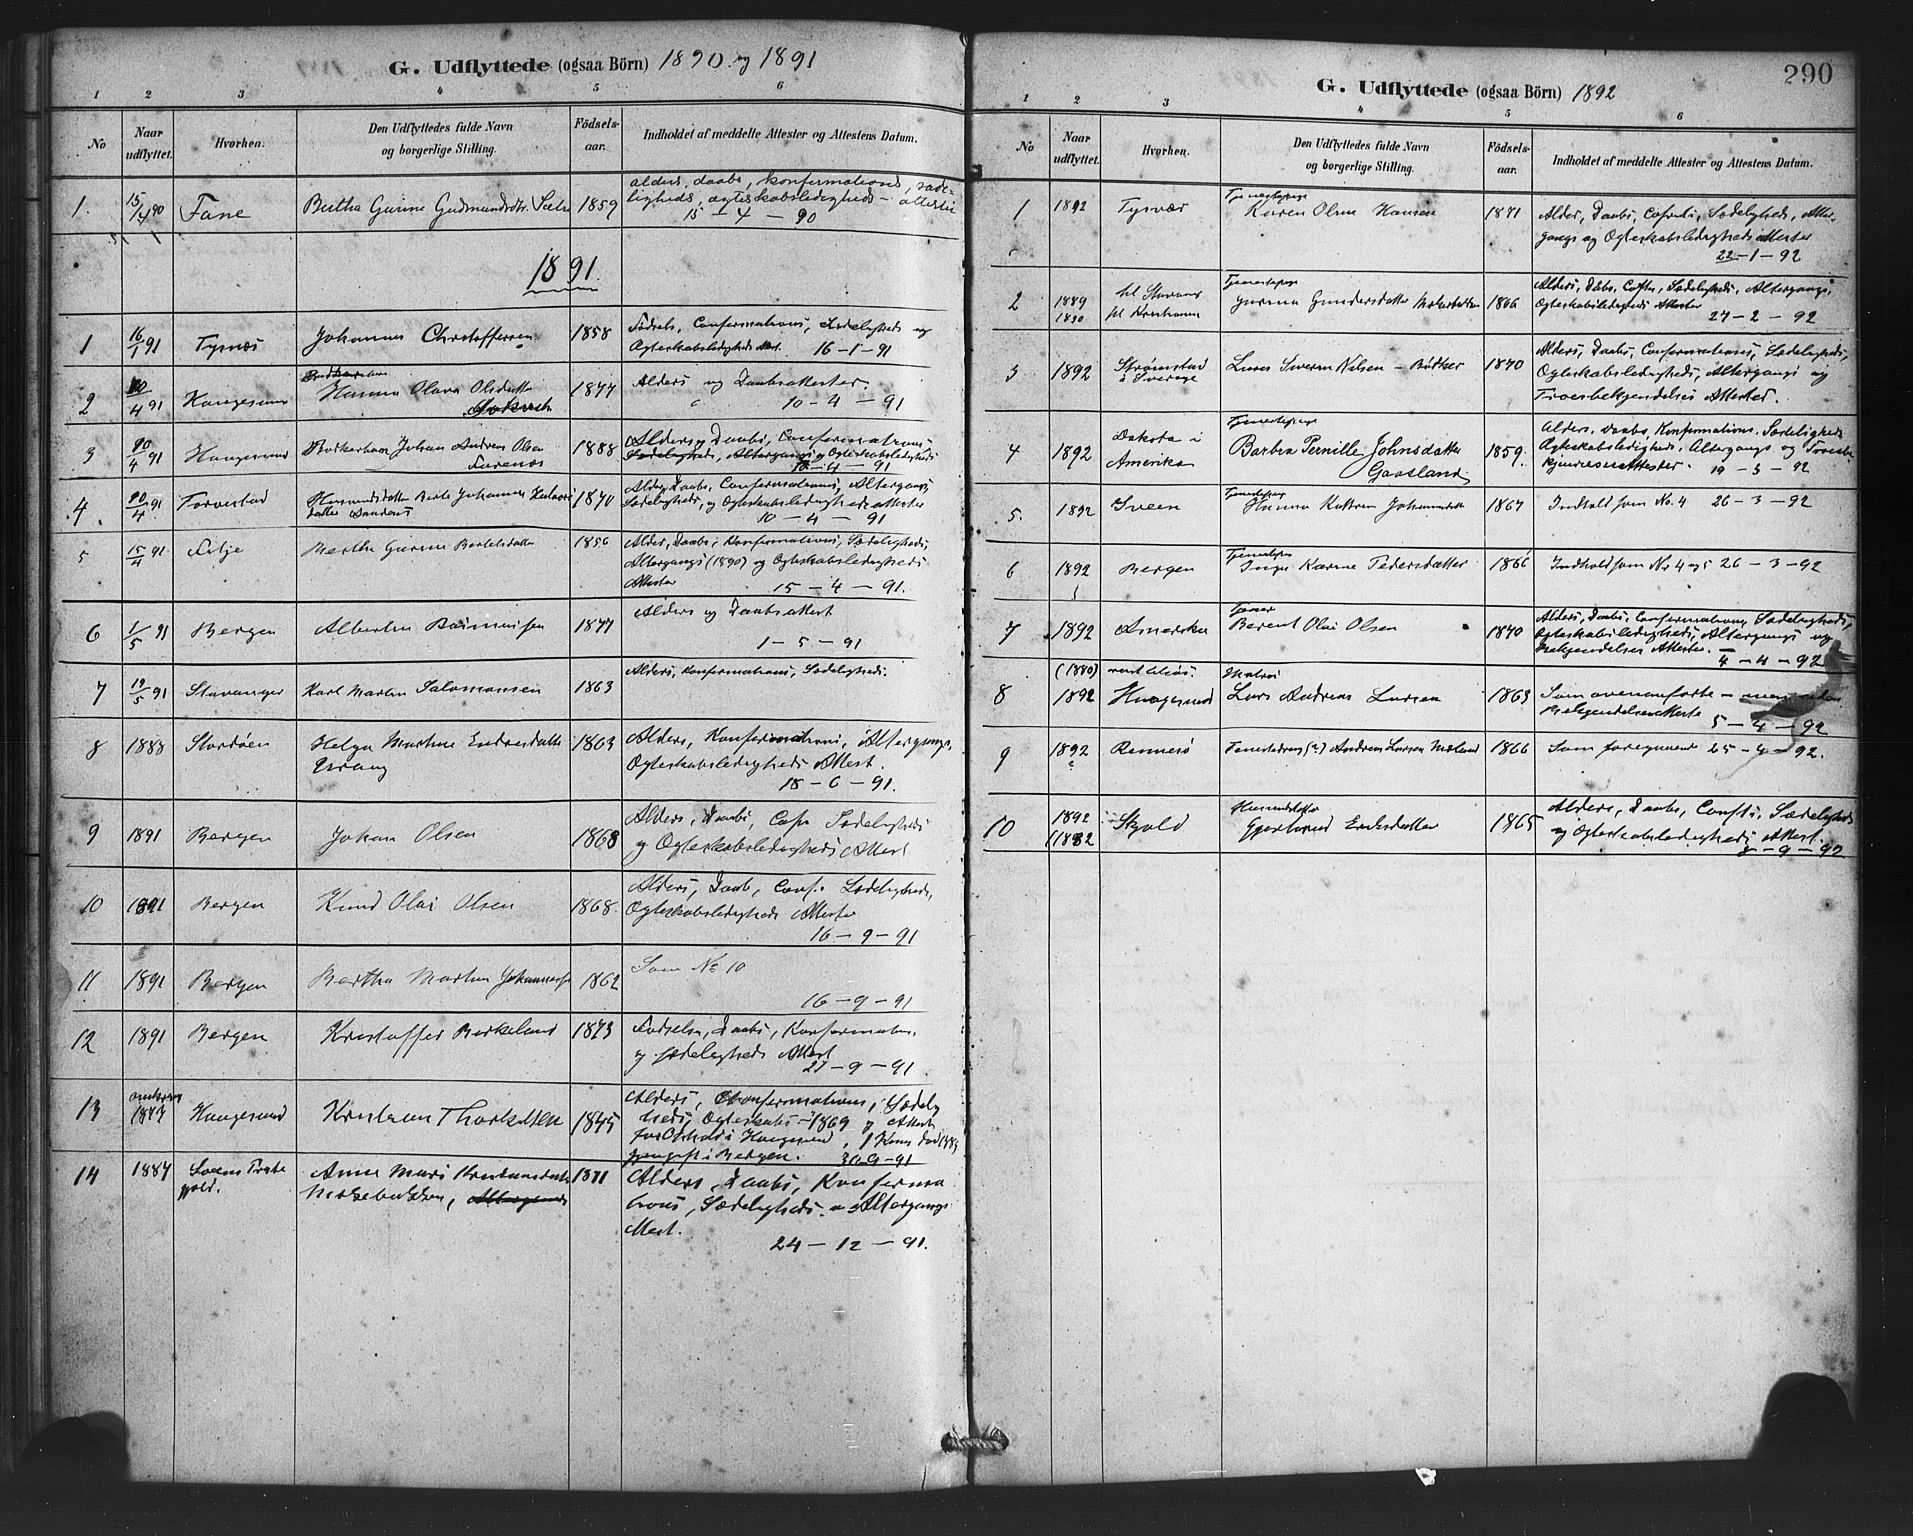 G. Udflyttede (ogsaa Börn) 1890 og 1891
1 2 3 4 5 6
No
Naar udflyttet.
Hvorhen.
Den Udflyttedes fulde Navn
og borgerlige Stilling.
Födsels-
aar.
Indholdet af meddelte Attester og Attestens Datum.
1. 15/4 90 Fane Bertha Gurine Gudmundsdtr. 1859 alders, daabs, konfirmations, sæde-
ligheds, ægteskabsledigheds- attester
15 - 4 - 90
1891.
1 16/1 91 Tysnæs Johannes Christoffersen 1858 Fødsels, Confirmations, Sædeligheds og
Ogteskabsledigheds Att. 16-1-91
2 10/4 91 Haugesund Hanna Olava Olsdatter 1877 Alders og Daabsattester.
10 - 4 - 91
3 10/4 91 Haugesund Johan Andreas Olsen 1888 Alders og Daabs, Confirmations
Sædeligheds, Altergangs og Ogteskabsledigheds
10 - 4 - 91
4. 10/4 91 Torvestad Berte Johanna 1870 Alder, Daabs, Confirmations, Altergangs,
Sædeligheds, og Ogteskabsledigheds Attester
10 - 4 - 91
5 15/4 91 Fitje Bertha Gurine Bertelsdatter 1856 Alder, Daabs, Konfirmations, Sædeligheds,
Altergangs (1890) og Ogteskabsledigheds
Attester 15 - 4 - 91.
6 1/5 91 Bergen Albertin Rasmussen 1877 Alders og Daabsattest
1 - 5 - 91
7 19/5 91 Stavanger Karl Martin Salomonsen 1863 Alders, Konfirmations, Sædeligheds.
8 1888 Stordöen Helga Martine Endresdatter 1863 Alders, Konfirmations, Altergangs,
Ogteskabsledigheds Attest.
18 - 6 - 91.
9 1891 Bergen Johan Olsen 1868 Alders, Daabs, Cofr Sædeligheds
og Ogteskabsledigheds Attest
10 1891 Bergen Knud Olai Olsen 1868. Alders, Daab, Conf. Sædeligheds,
Ogteskabsledigheds Attester
16 - 9 - 91
11 1891 Bergen Bertha Martha 1862 Som No 10
16 - 9 - 91
12 1891 Bergen Kristoffer Birkeland 1873 Fødsels, Daabs, Konfirmations,
og sædeligheds Attest
27 - 9 - 91
13 1887 Haugesund Kristian Thorkildsen 1845 Alders, Confirmations, Sædelig
heds, Ogteskabs - 1869 og Attest
for Ophold i Haugesund, 1 Kones Død
i Bergen. 30-9-91
14 1887 Anne Mari Kristiansdatter 1871 Alders, Daabs, Konfirma
tions, Sædeligheds og Altergangs
Attest.
24 - 12 - 91.
290
G. Udflyttede (ogsaa Börn) 1892
1 2 3 4 5 6
No
Naar udflyttet.
Hvorhen.
Den Udflyttedes fulde Navn
og borgerlige Stilling.
Födsels-
aar.
Indholdet af meddelte Attester og Attestens Datum.
1 1892 Tysvær Tjenestepige
Karen Oline Hansen 1871 Alder, Daabs, Cofrmts, Sædeligheds, Alter-
gangs og Ogteskabsledigheds Attester
22 - 1 - 92
2 1889 til Stavang Tjenestepige
1890 Gurina Gundersdatter 1866 Alders, Daabs, Cofts, Sædeligheds, Altergangs,
Ogteskabsledigheds Attester
27 - 2 - 92
3 1892 Strömstad
i Sverige Lars Severin Nilsen - Bödker 1870 Alders, Daabs, Confirmations, Sædeligheds,
Ogteskabsledigheds, Altergangs og
Troesbekjendelses Attester.
4 1892 Dakota i
Amerika Tjenestepige
Barbra Pernille Johnsdatter
Gaasland 1859. Alders, Daabs, Konfirmations, Sædeligheds
Ogteskabsledigheds, Altergangs og Troesbe-
kjendelsesattester. 19 - 3 - 92
5. 1892 Sveen Tjenestepige
Hanna Katrine Johannesdtr 1867 Indhold som No. 4 26 - 3 - 92
6 1892 Bergen Tjenestepige
Inga Karine Pedersdatter 1866 Indhold som No 4 og 5 26 - 3 - 92
7 1892 Amerika Tjener
Berent Olai Olsen 1870 Alders, Daabs, Confirmations, Sædeligheds,
Ogteskabsledigheds, Altergangs og
bekjendelses Attester.
4 - 4 - 92
8 (1880)
1892 Haugesund Matros
Lars Andreas Larsen 1863 Som ovenanførte - men uden
Bekjendelses Attest
5 - 4 - 92
9 1892 Rennesö Andreas Larsen 1866 Som foregaaende 25 - 4 - 92.
10 1892
(1882 Skjold Gjertrud Endresdatter 1865 Alders, Daabs, Confts, Sædeligheds
og Ogteskabsledigheds Attest
8 - 9 - 92